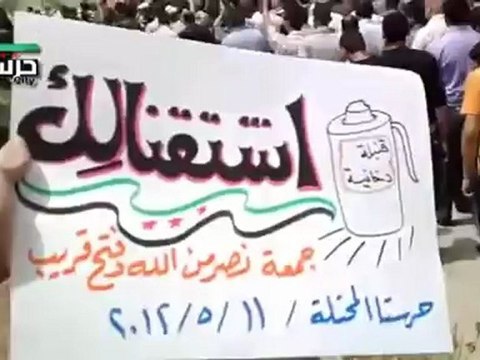 اشتقنالك
قنبلة
دخانية
جمعة نصر من الله وفتح قريب
حرستا المحتلة / ١١ / ٥ / ٢٠١٢